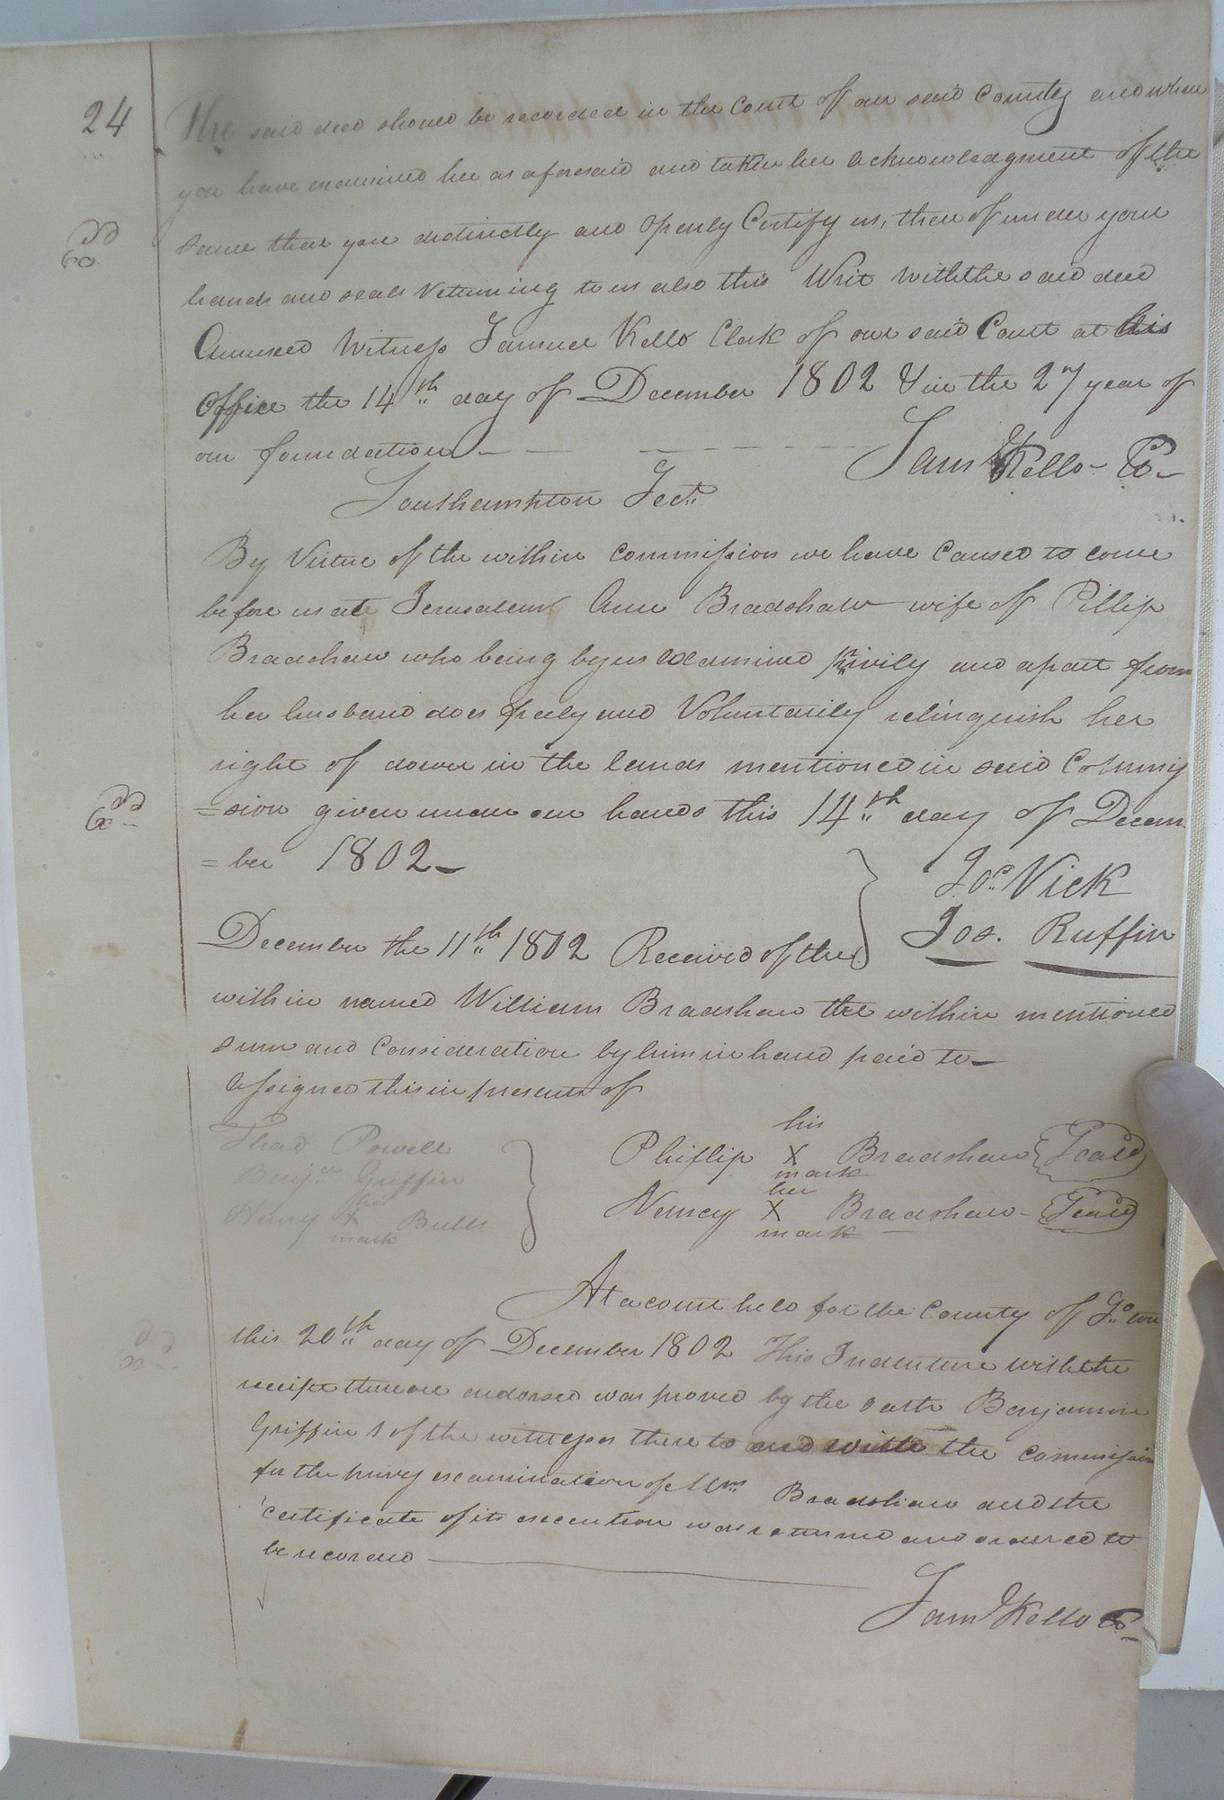 24
The said deed should be recorded in the Court of our said County and when
you have examined her as aforesaid and taken her acknowledgment of the
same that you distinctly and openly Certify us, there of under your
hands and seals returning to us also this Writ with the said deed
Annexed Witness Samuel Kello Clerk of our said Court at his
Office the 14th day of December 1802 & in the 27 year of
our foundation
Sam Kello
Southampton
By Virtue of the within commission we have Caused to come
before us at Jerusalem Ann Bradshaw wife of Pillip
Bradshaw who being by us examined privily and apart from
her husband does freely and Voluntarily relinquish her
right of dower in the lands mentioned in said Commis
=sion given under our hands this 14th day of Decem
=ber 1802
Jos. Vick
Jos. Ruffin
December the 11th 1802 Received of the
within named William Bradshaw the within mentioned
sum and Consideration by him in hand paid to
Assigned this in presents of
his
Phillip X Bradshaw Seal
mark
her
Nancy X Bradshaw Seal
mark
Thad Powell
Benjn Griffin
his
Henry X Butts
mark
At a court held for the County of
this 20th day of December 1802 This Indenture with the
receipt thereon endorsed was proved by the oath Benjamin
Griffin 1 of the witnesses there to and with the commission
for the privy examination of Bradshaw and the
certificate of its execution was returned and ordered to
be recorded
Sam Kello